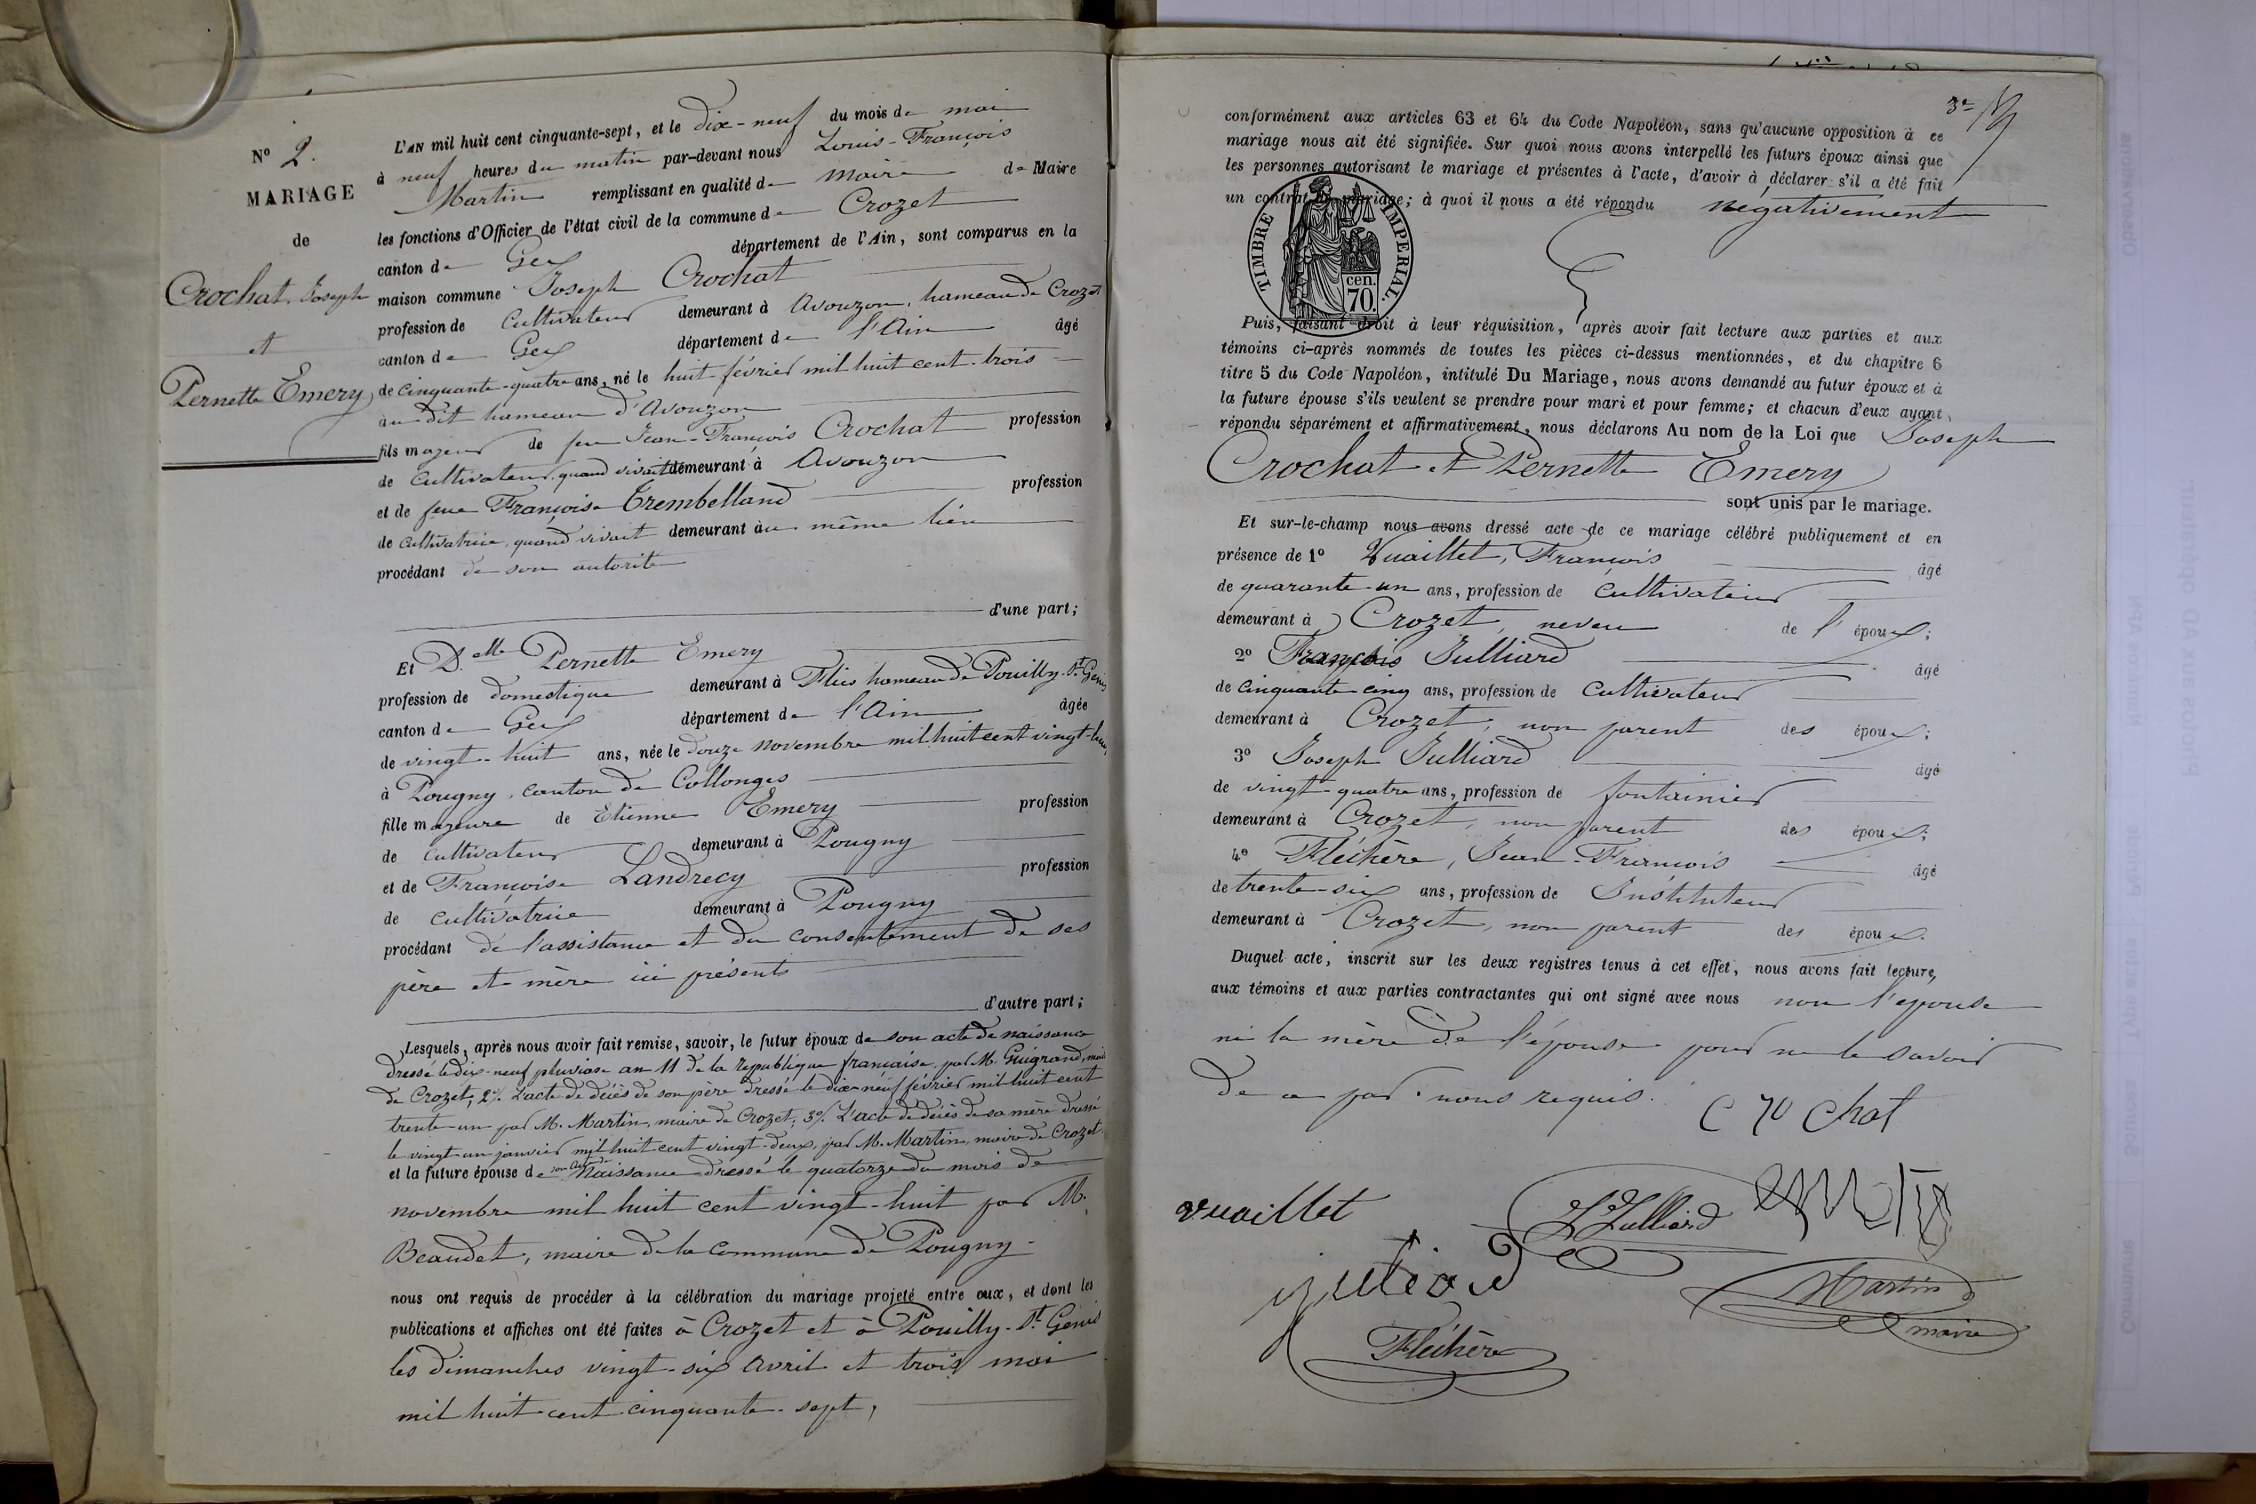 N° 2.
MARIAGE
de
Crochat Joseph
et
Pernette Emery
L'AN mil huit cent cinquante-sept, et le dix-neuf du mois de mai
à neuf heures du matin par-devant nous Louis-François
Martin remplissant en qualité de maire de Maire
les fonctions d'Officier de l'état civil de la commune de Crozet
canton de Gex département de l'Ain, sont comparus en la
maison commune Joseph Crochat
profession de Cultivateur demeurant à Avouzon, hameau de Crozet
canton de Gex département de l'Ain âgé
de cinquante-quatre ans, né le huit février mil huit cent trois
au dit hameau d'Avouzon
fils majeur de feu Jean-François Crochat profession
de Cultivateur, quand vivait demeurant à Avouzon
et de feue Françoise Trembelland profession
de cultivatrice, quand vivait demeurant au même lieu
procédant de son autorité
d'une part;
Et D.elle Pernette Emery
profession de domestique demeurant à Flies hameau de Pouilly-St Genis
canton de Gex département de l'Ain âgée
de vingt-huit ans, née le douze novembre mil huit cent vingt-huit
à Pougny, canton de Collonges
fille majeure de Etienne Emery profession
de cultivateur demeurant à Pougny
et de Françoise Landrecy profession
de cultivatrice demeurant à Pougny
procédant de l'assistance et du consentement de ses
père et mère ici présents
d'autre part;
Lesquels, après nous avoir fait remise, savoir, le futur époux de son acte de naissance
dressé le dix-neuf pluviose an 11 de la république française, par M. Guigrand, maire
de Crozet, 2°/. L'acte de décès de son père dressé le dix-neuf février mil huit cent
trente-un par M. Martin, maire de Crozet; 3°/. L'acte de décès de sa mère dressé
le vingt-un janvier mil huit cent vingt-deux, par M. Martin, maire de Crozet.
et la future épouse de son acte de Naissance dressé le quatorze du mois de
novembre mil huit cent vingt-huit par M.
Beaudet, maire de la commune de Pougny.
nous ont requis de procéder à la célébration du mariage projeté entre eux, et dont les
publications et affiches ont été faites à Crozet et à Pouilly-St Genis
les dimanches vingt-six avril et trois mai
mil huit cent cinquante-sept,
conformément aux articles 63 et 64 du Code Napoléon, sans qu'aucune opposition à ce
mariage nous ait été signifiée. Sur quoi nous avons interpellé les futurs époux ainsi que
les personnes autorisant le mariage et présentes à l'acte, d'avoir à déclarer s'il a été fait
un contrat de mariage; à quoi il nous a été répondu négativement
TIMBRE IMPERIAL.
cen.
70.
Puis, faisant droit à leur réquisition, après avoir fait lecture aux parties et aux
témoins ci-après nommés de toutes les pièces ci-dessus mentionnées, et du chapitre 6
titre 5 du Code Napoléon, intitulé Du Mariage, nous avons demandé au futur époux et à
la future épouse s'ils veulent se prendre pour mari et pour femme; et chacun d'eux ayant
répondu séparément et affirmativement, nous déclarons Au nom de la Loi que Joseph
Crochat et Pernette Emery
sont unis par le mariage.
Et sur-le-champ nous avons dressé acte de ce mariage célébré publiquement et en
présence de 1° Vuaillet, François âgé
de quarante-un ans, profession de Cultivateur
demeurant à Crozet, neveu de l'époux;
2° François Julliard âgé
de cinquante-cinq ans, profession de cultivateur
demeurant à Crozet, non parent des époux;
3° Joseph Julliard âgé
de vingt-quatre ans, profession de fontainier
demeurant à Crozet, non parent des époux;
4° Fléchère, Jean-François âgé
de trente-six ans, profession de Instituteur
demeurant à Crozet, non parent des époux.
Duquel acte, inscrit sur les deux registres tenus à cet effet, nous avons fait lecture,
aux témoins et aux parties contractantes qui ont signé avec nous non l'épouse
ni la mère de l'épouse pour ne le savoir
de ce par nous requis.
Crochat
vuaillet
Julliard
Martin
maire
Fléchère